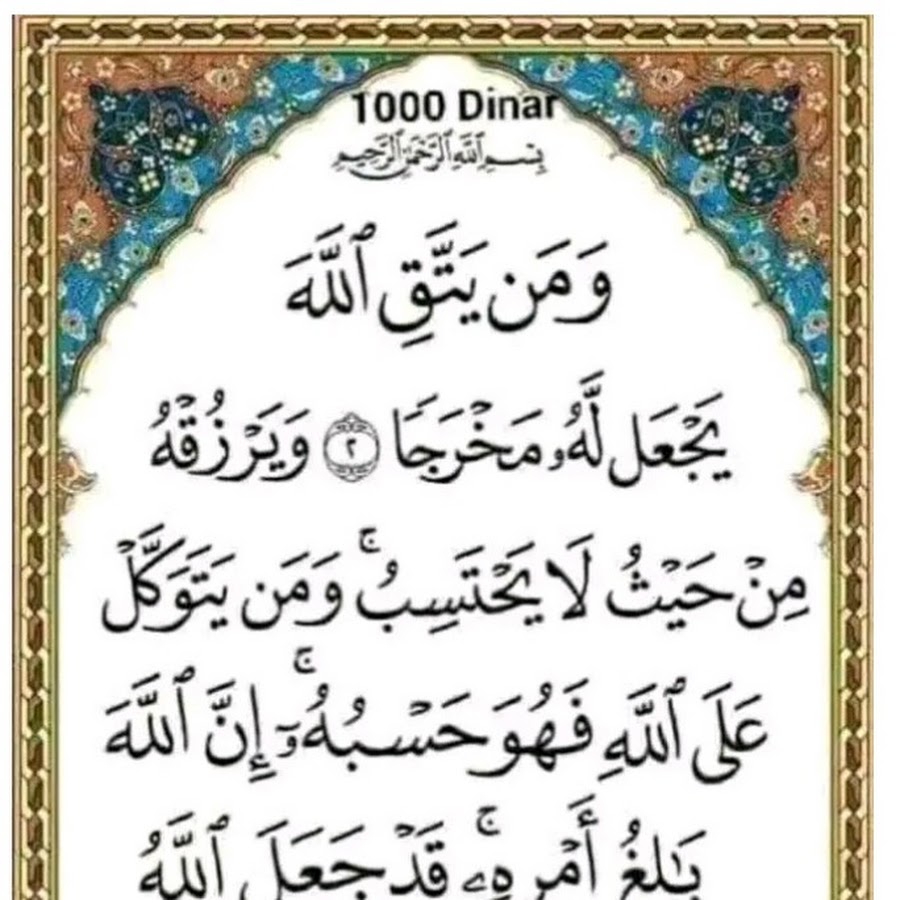 1000 Dinar
بِسْمِ ٱللَّهِ ٱلرَّحْمَٰنِ ٱلرَّحِيمِ
وَمَن يَتَّقِ ٱللَّهَ
يَجْعَل لَّهُۥ مَخْرَجًا ٢ وَيَرْزُقْهُ
مِنْ حَيْثُ لَا يَحْتَسِبُ ۚ وَمَن يَتَوَكَّلْ
عَلَى ٱللَّهِ فَهُوَ حَسْبُهُۥٓ ۚ إِنَّ ٱللَّهَ
بَٰلِغُ أَمْرِهِۦ ۚ قَدْ جَعَلَ ٱللَّهُ